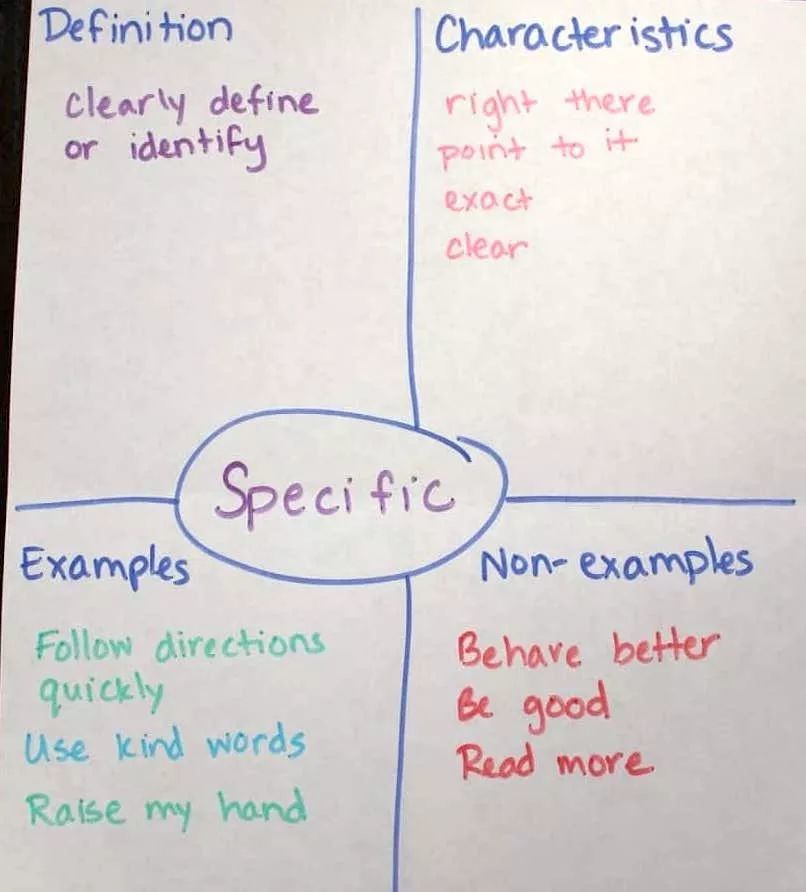 Definition
clearly define
or identify
Characteristics
right there
point to it
exact
clear
Specific
Examples
Follow directions
quickly
Use kind words
Raise my hand
Non-examples
Behave better
Be good
Read more